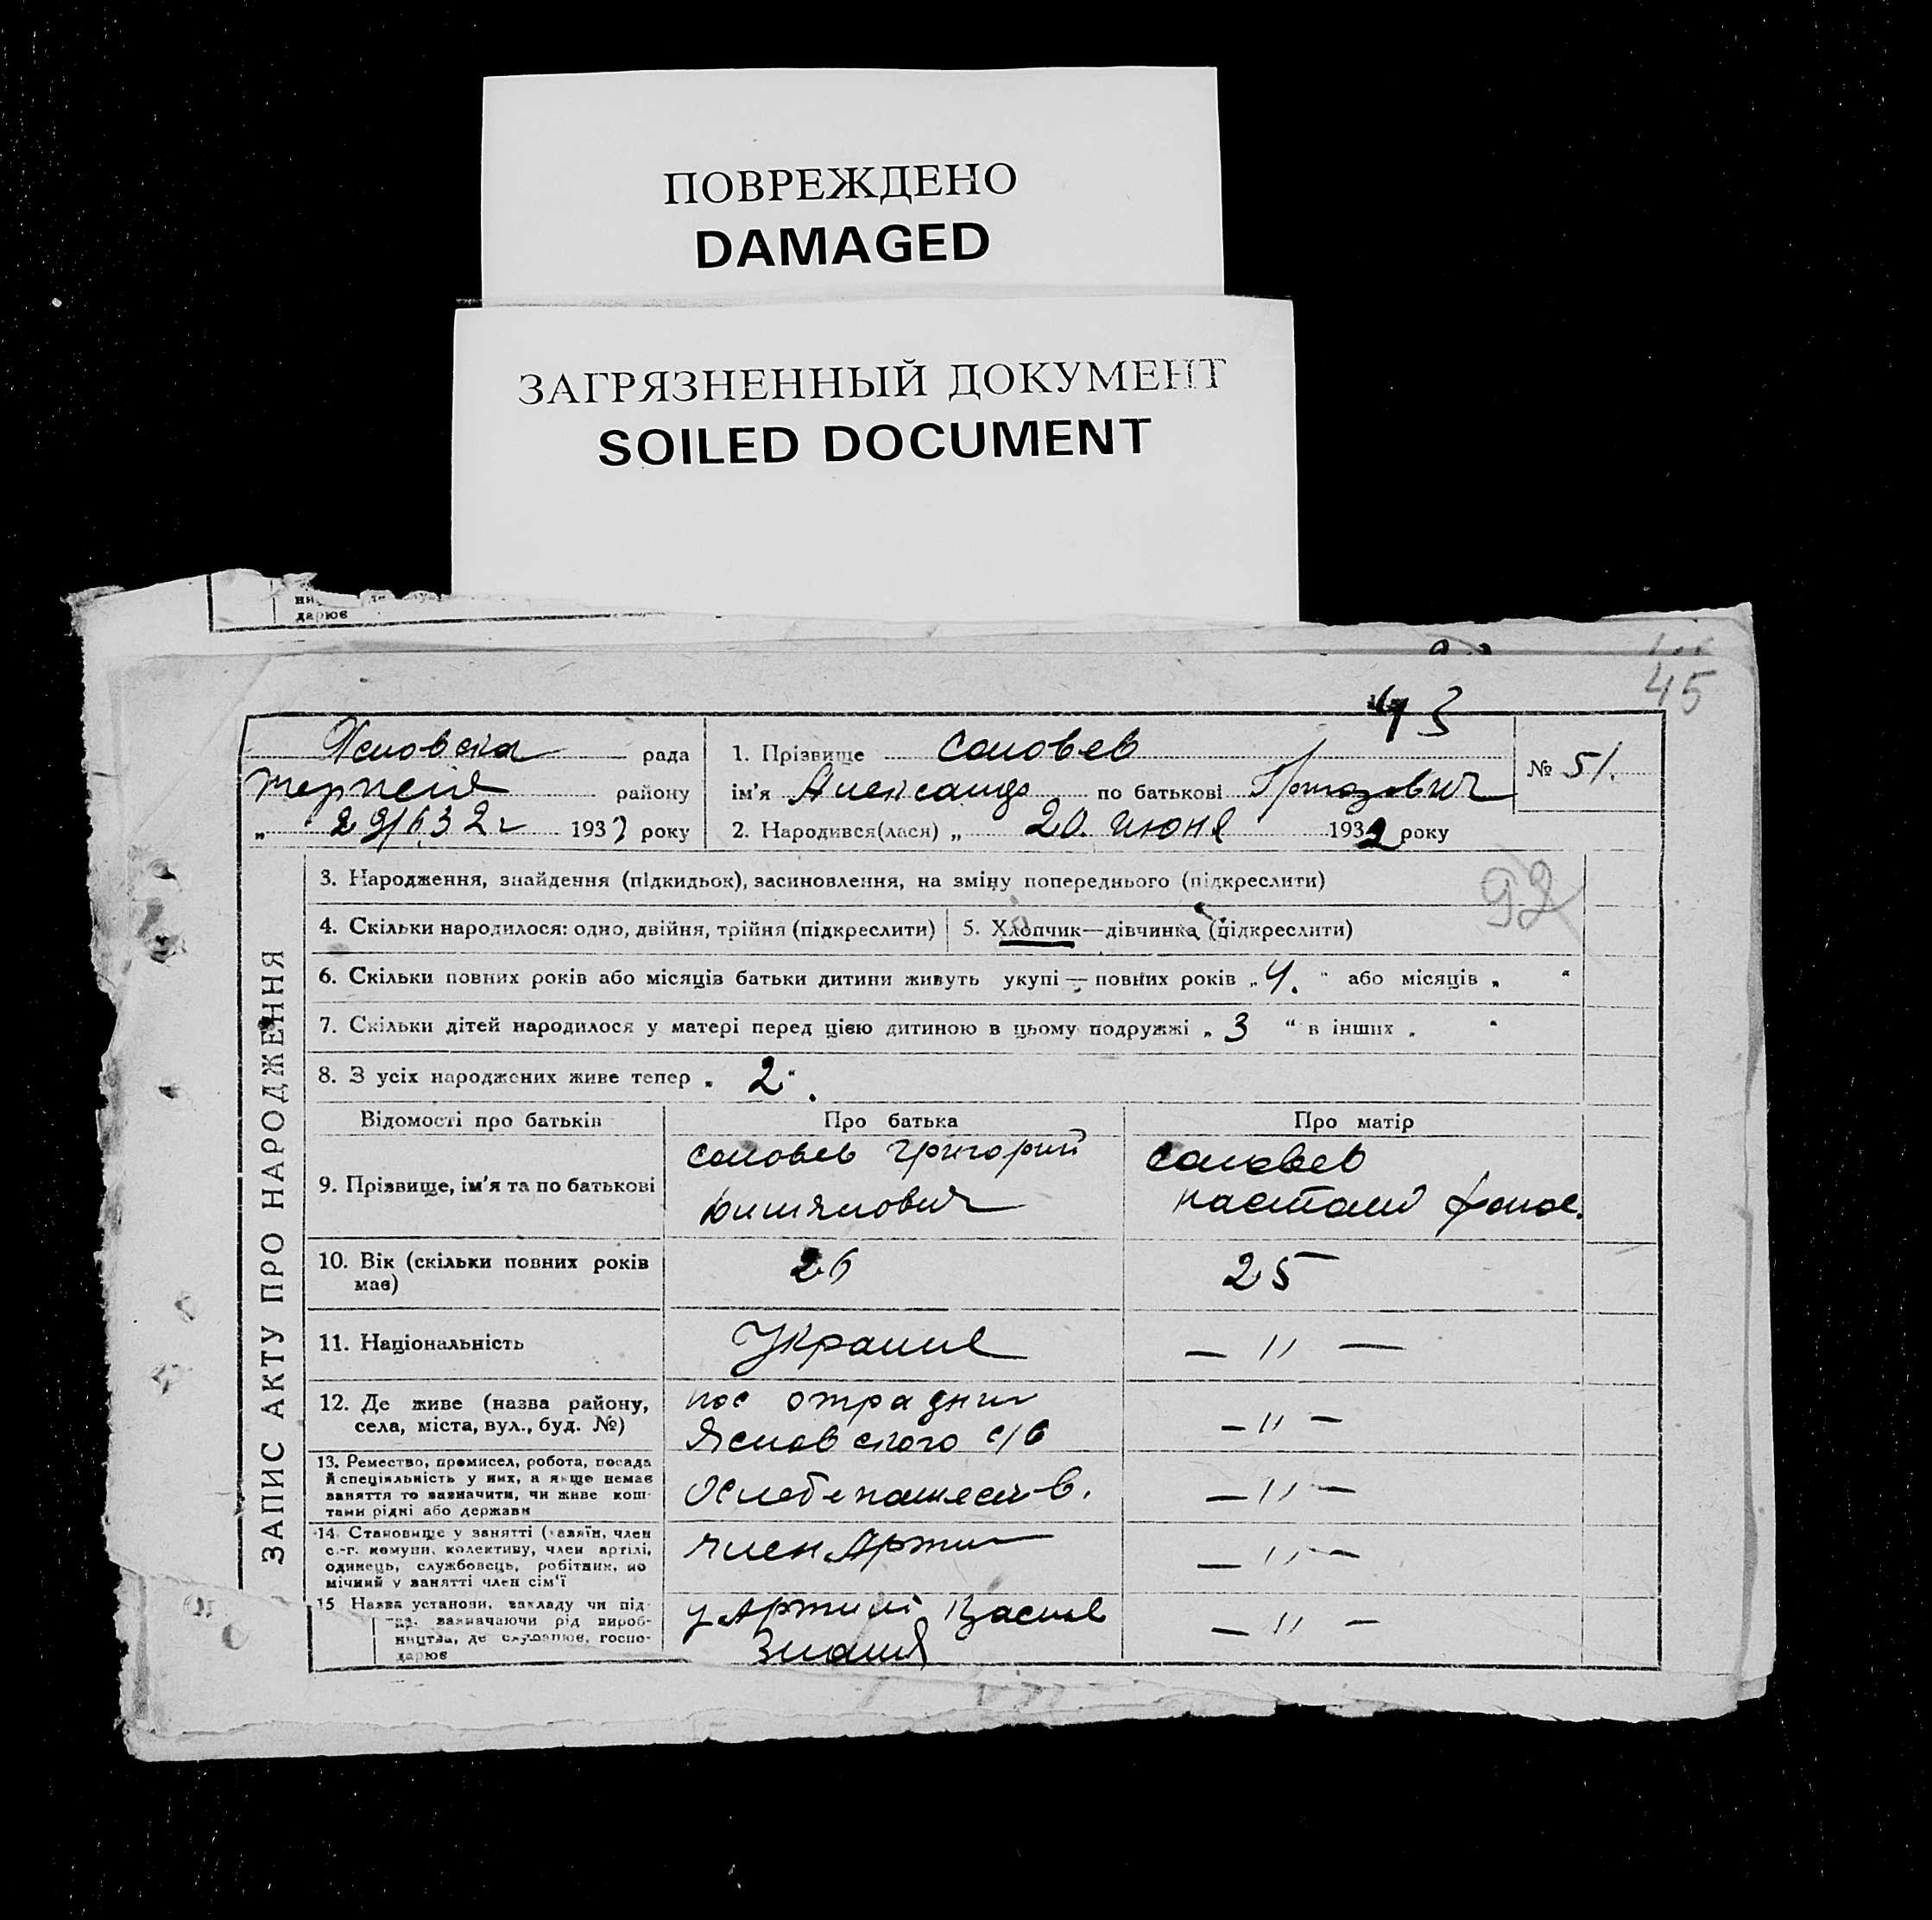 ПОВРЕЖДЕНО
DAMAGED
ЗАГРЯЗНЕННЫЙ ДОКУМЕНТ
SOILED DOCUMENT
дарює
45
рада
1. Прізвище Соловьев
№ 51.
району
ім'я Александр по батькові
„ 29/6 32 г 1932 року
2. Народився(лася) „ 20. июня 1932 року
92
ЗАПИС АКТУ ПРО НАРОДЖЕННЯ
3. Народження, знайдення (підкидьок), засиновлення, на зміну попереднього (підкреслити)
4. Скільки народилося: одно, двійня, трійня (підкреслити)
5. Хлопчик—дівчинка (підкреслити)
6. Скільки повних років або місяців батьки дитини живуть укупі — повних років „ 4. “ або місяців „ “
7. Скільки дітей народилося у матері перед цією дитиною в цьому подружжі „ 3 “ в інших „ “
8. З усіх народжених живе тепер „ 2 “
Відомості про батьків
Про батька
Про матір
9. Прізвище, ім'я та по батькові
Соловьев Григорий
Соловьев
10. Вік (скільки повних років
має)
26
25
11. Національність
— 〃 —
12. Де живе (назва району,
села, міста, вул., буд. №)
пос отрадни
Ясновского с/с
— 〃 —
13. Ремество, промисел, робота, посада
й спеціяльність у них, а якщо немає
заняття то зазначити, чи живе кош-
тами рідні або держави
— 〃 —
14. Становище у занятті (хазяїн, член
с.-г. комуни, колективу, член артілі,
одинець, службовець, робітник, по
мічний у занятті член сім'ї
член Артил
— 〃 —
15 Назва установи, закладу чи під-
зазначаючи рід вироб-
ництва, де службовює, госпо-
дарює
у Артилі
— 〃 —